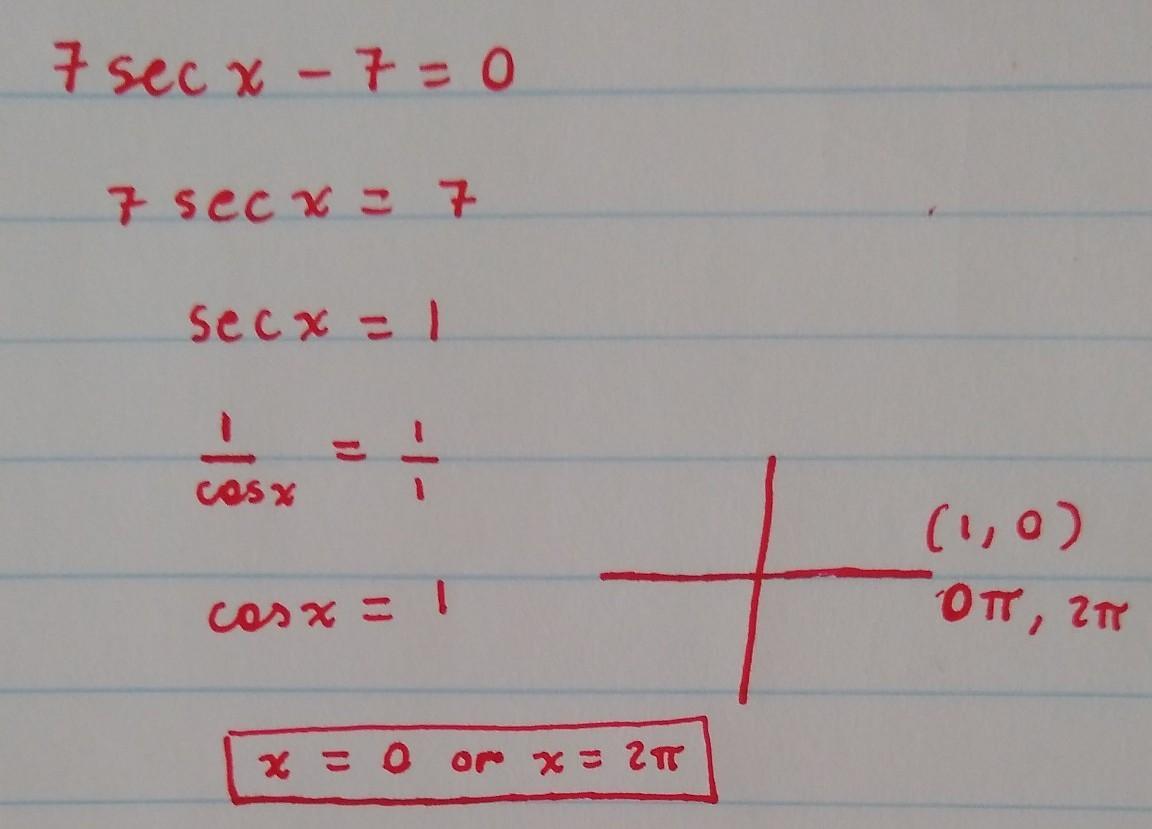 7 sec x - 7 = 0
7 sec x = 7
sec x = 1
1/cos x = 1/1
(1, 0)
cos x = 1
0π, 2π
x = 0 or x = 2π